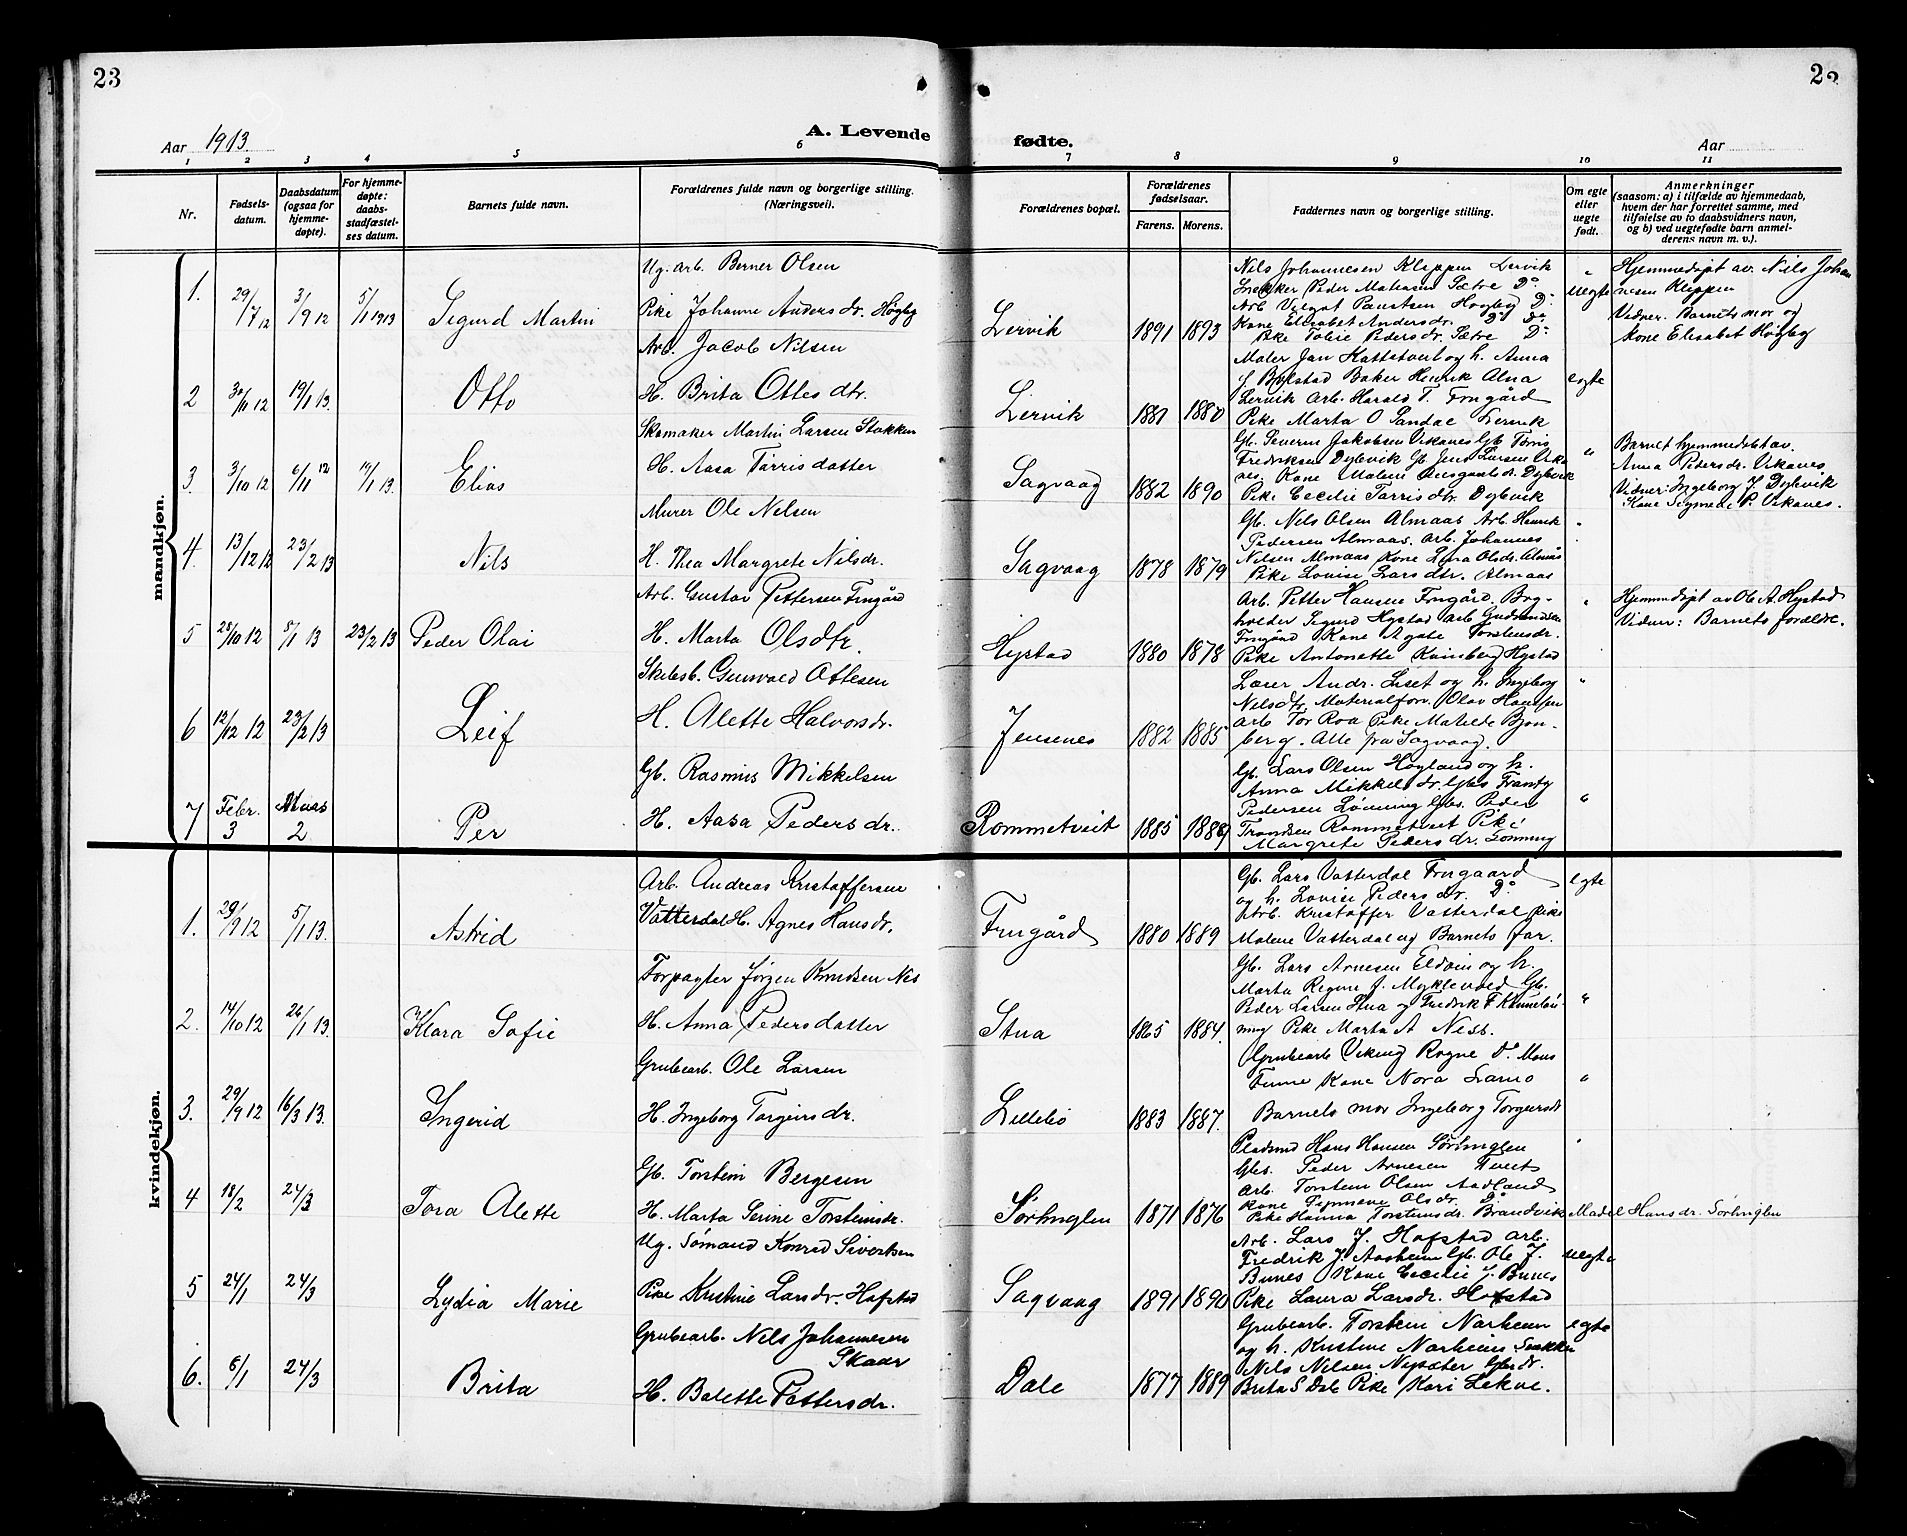 23
Aar 1913.
A. Levende
1 2 3 4 5 6
Nr.
Fødsels-
datum.
Daabsdatum
(ogsaa for
hjemme-
døpte).
For hjemme-
døpte:
daabs-
stadfæstel-
ses datum.
Barnets fulde navn.
Forældrenes fulde navn og borgerlige stilling.
(Næringsvei).
mandkjøn.
Ug. Arb. Berner Olsen
1. 29/7 12 3/9 12 5/1 1913 Sigurd Martin Pike Johanne Anders dr. Høgby
Arb. Jacob Nilsen
2 30/11 12 19/1 13. Otto H. Brita Ottes dtr.
Skomaker Martin Larsen Stokken
3. 3/10 12 6/11 12 19/1 13. Elias H. Aasa Tørris datter
Murer Ole Nelsen
4. 13/12 12 23/2 13 Nils H. Thea Margrete Nilsdr.
Arb. Gustav Pettersen Frugård
5 28/10 12 5/1 13 23/2 13 Peder Olai H. Marta Olsdtr.
Skibsb. Gunvald Ottesen
6 12/12 12 23/2 13 Leif H. Alette Halvorsdr.
Gb. Rasmus Mikkelsen
7 Febr. 3 2. Per H. Aasa Peders dr.
kvindekjøn.
Arb. Andreas Kristoffersen
1. 29/9 12 5/1 13. Astrid Vatterdal H. Agnes Hansdr.
Forpagter Jørgen Knudsen Nes
2. 14/10 12 26/1 13. Klara Sofie H. Anna Pedersdatter
Grubearb. Ole Larsen
3. 29/9 12 16/3 13. Ingerid H. Ingeborg Torgeirs dr.
Gb. Torstein Bergesen
4 18/2 24/3 Tora Alette H. Marta Serine Torsteinsdr.
Ug. Sømand Konrad Sivertsen
5 24/1 24/3 Lydia Marie Pike Kristine Larsdr. Hofstad
Grubearb. Nils Johannesen
Skaar
6. 6/1 24/3 Brita H. Balette Pettersdr.
fødte.
Aar
7 8 9 10 11
Forældrenes bopæl.
Forældrenes
fødselsaar.
Farens. Morens.
Faddernes navn og borgerlige stilling.
Om egte
eller
uegte
født.
Anmerkninger
(saasom: a) i tilfælde av hjemmedaab,
hvem der har forrettet samme, med
tilføielse av to daabsvidners navn,
og b) ved uegtefødte barn anmel-
derens navn m. v.).
Lervik 1891 1893
Nils Johannesen Klippen Lervik
Snekker Peder Sætre Do
Arb. Høgby Do
Kone Elisabet Andersdr. Do
Pike Pedersdr. Sætre Do
uegte
Hjemmedøpt av Nils Johan
nesen Klippen
Vidner: Barnets mor og
Kone Elisabet Høgby
Lervik 1881 1880
Maler Jan Kattstout og h. Anna
Baker Henrik Alna
Lervik Arb. Harald T. Frugård
Pike Marta O Sandal Lervik
egte
Sagvaag 1882 1890
Gb. Severin Jakobsen Vikanes Gb. Tørris
Fredriksen Dybvik Gb. Jens Larsen Vika
nes. Kone Malene dr. Dybvik
Pike Cecilie Tørris dtr. Dybvik
"
Barnet hjemmedøbt av
Anna Pedersdr. Vikanes
Vidner: Ingeborg J. Dybvik
Kone P. Vikanes.
Sagvaag 1878 1879
Gb. Nils Olsen Almaas Arb. Henrik
Pedersen Almaas. Arb. Johannes
Nilsen Almaas Kone Lina Olsdr. Almås
Pike Lovise Lars dtr. Almaas
"
Hystad 1880 1878
Arb. Petter Hansen Frugård. Brg-
holder Sigurd Hystad Arb.
Frugård Kone Agate Torsteinsdr.
Pike Antonette Hystad
"
Hjemmedøpt av Ole A. Hystad
Vidner: Barnets forældre.
Jensenes 1882 1885
Lærer Andr. Liset og h. Ingeborg
Nilsdtr. Materialforv. Olav Hansen
Arb. Tor Roa Pike Matilde Bjon-
berg. Alle fra Sagvaag.
"
Rommetveit 1885
Gb. Lars Olsen Høyland og h.
Anna Mikkels dr. Gbs.
Pedersen Lønning Gbs. Peder
Trondsen Rommetveit Pike
Margrete Peders dr. Lønning
"
Frugård 1880 1889
Gb. Lars Vatterdal Frugaard
og h. Lovise Peders dr. Do
Arb. Kristoffer Vatterdal Pike
Malene Vatterdal og Barnets far.
egte
Stua 1865 1884.
Gb. Lars Arnesen Eldøin og h.
Marta Regine J. Myklevold Gb.
Peder Larsen Stua og Fredrik F.
Pike Marta A Ness.
"
Lillebø 1883 1887.
Grubearb Viking Rogne Do. Mons
Kone Nora
Barnets mor Ingeborg Torgeirsdr
"
Sørhuglen 1871 1876
Pladsmd Hans Hansen Sørhuglen
Gbs. Peder Arnesen Tveit
Arb. Torstein Olsen Aadland
Kone Synnøve Olsdr. Do
Pike Hanna Torsteinsdr. Brandvik Hansdr. Sørhuglen
Sagvaag 1891 1890
Arb. Lars J. Hofstad Arb.
Fredrik J. Aasheim Gb. Ole J.
Bunes Kone Cecilie J. Bunes
Pike Laura Larsdr. Hofstad
uegte
Dale 1877 1889
Grubearb. Torstein Narheim
og h. Kristine Narheim
Nils Nilsen Nysæter
Brita S Dale Pike Kari Lekve.
egte